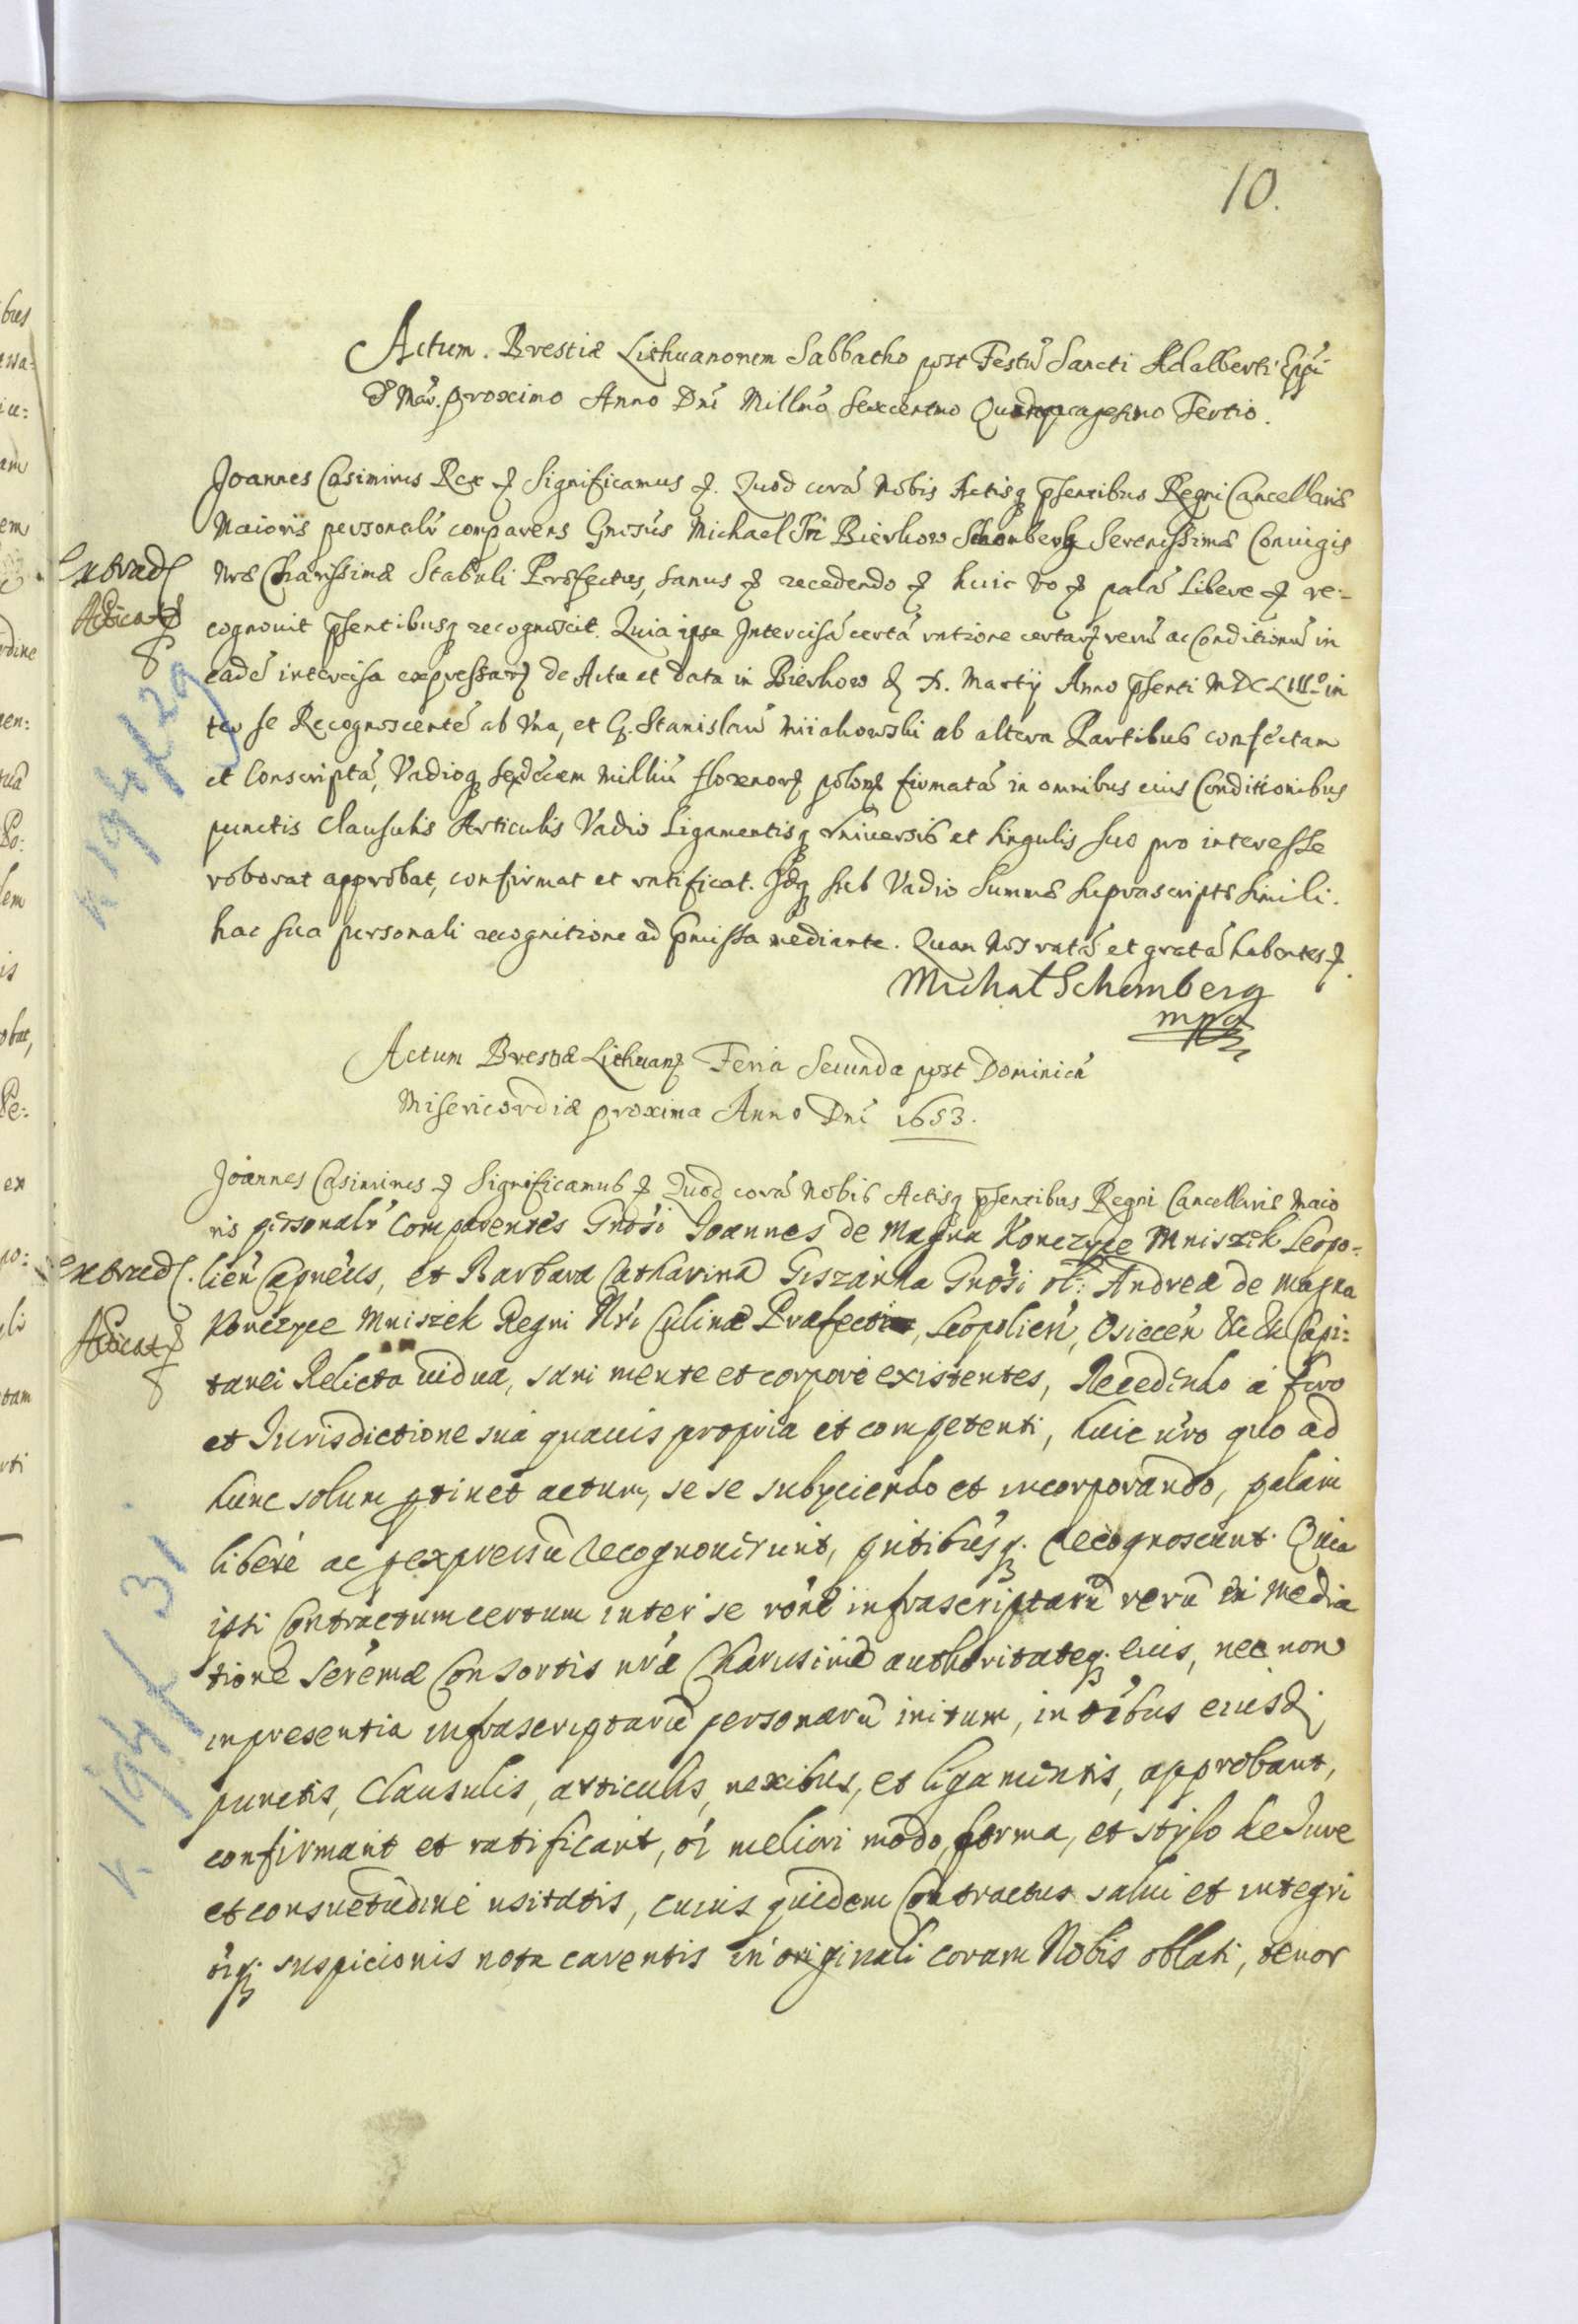 10.
Actum. Brestiæ Lithuanorem Sabbatho post Festũ Sancti Adalberti Eppi
& Mar. proximo Anno Dni Millmo Sexcentmo Quinquagesimo Tertio.
Joannes Casimirus Rex & Significamus &. Quod corã Nobis Actisq psentibus Regni Cancellariæ
Maioris personalr comparens Gnosus Michael Fri Bierhow Schonberg Serenissimæ Coniugis
Nræ Charissimæ Stabuli Præfectus, sanus & recedendo & huic vo & palã Libere & re-
cognouit psentibusq recognoscit. Quia ipse Intercisã certã ratione certarũ rerũ ac Conditionũ in
eadẽ intercisa expressarũ de Actu et data in Bierhow & X. Martij Anno psenti MDCLIIIo in
ter se Recognoscentẽ ab Vna, et G. Stanislaũ Miiakowski ab altera Partibus confectam
et Conscriptã, Vadioq sedecem Milliũ florenorũ polon firmatã in omnibus eius Conditionibus
punctis Clausulis Articulis Vadio Ligamentisq Vniuersis et singulis suo pro interesse
roborat approbat, confirmat et ratificat. Idq sub Vadio Summæ suprascriptæ simili.
hac sua personali recognitione ad pmissa mediante. Quam Nos ratã et gratã habentes &.
Michal Schemberg
mpa
Actum Brestiæ Lithuan Feria Secunda post Dominicã
Misericordiæ proxima Anno Dni 1653.
Joannes Casimirus & Significamus & Quod corã Nobis Actisq psentibus Regni Cancellariæ Maio
ris personalr Comparentes Gnosi Ioannes de Magna Konczyce Mniszek Leopo-
lien Capneus, et Barbara Catharina Giszanka Gnosi ol: Andreæ de Magna
Konczyce Mniszek Regni Nri Culinæ Præfecti, Leopolien, Osiecen & & Capi:
tanei Relicta uidua, sani mente et corpore existentes, Recedendo a foro
et Jurisdictione sua quauis propria et competenti, huic uro quo ad
hunc solum ptinet actum, se se subyciendo et incorporando, palam
libere ac pexpressũ recognouerunt, pntibusq. recognoscunt. Quia
ipsi Contractum certum inter se rone infrascriptarũ rerũ ex media
tione Serẽmæ Consortis nræ Charissimæ authoritateq. eius, nec non
in presentia infrascriptarũ personarũ initum, in oibus eiusd.
punctis, Clausulis, articulis, nexibus, et ligamentis, approbant,
confirmant et ratificant, oi meliori modo, forma, et stylo de Jure
et consuetudine usitatis, cuius quidem Contractus salui et integri
oiq. suspicionis nota carentis in originali coram Nobis oblati, tenor
Extrad
Adicat
K 194/29
Extrad.
Adicat
K 194/31